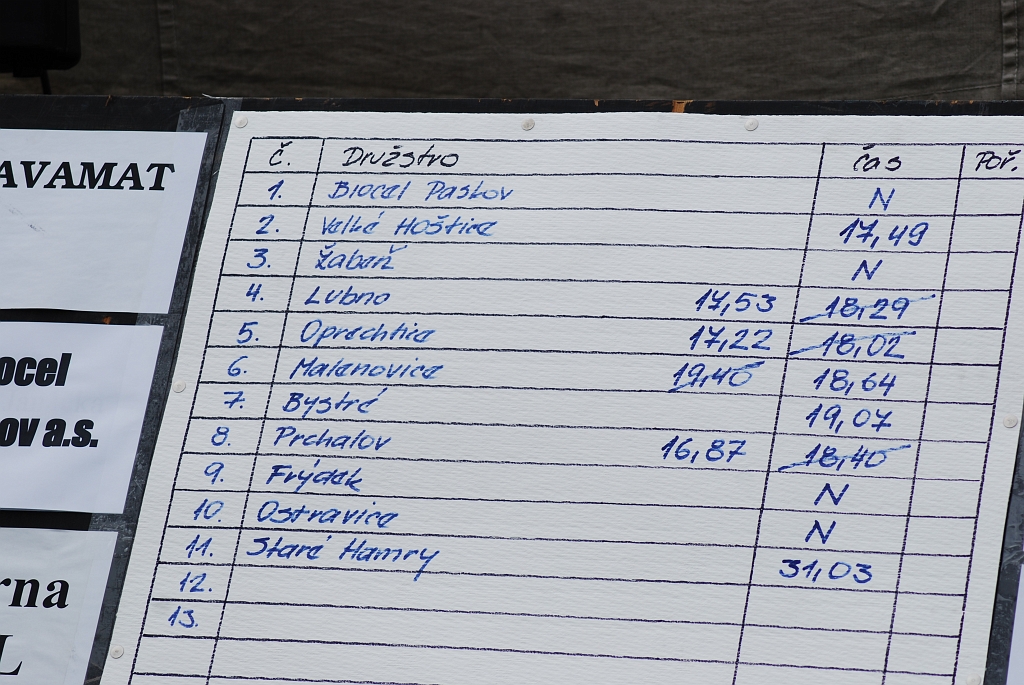 AVAMAT
ocel
ov a.s.
rna
L
č. Družstvo čas Poř.
1. Biocel Paskov N
2. Velké Hoštice 17,49
3. Žabeň N
4. Lubno 17,53 18,29
5. Oprechtice 17,22 18,02
6. Malenovice 19,40 18,64
7. Bystré 19,07
8. Prchalov 16,87 18,40
9. Frýdek N
10. Ostravice N
11. Staré Hamry 31,03
12.
13.